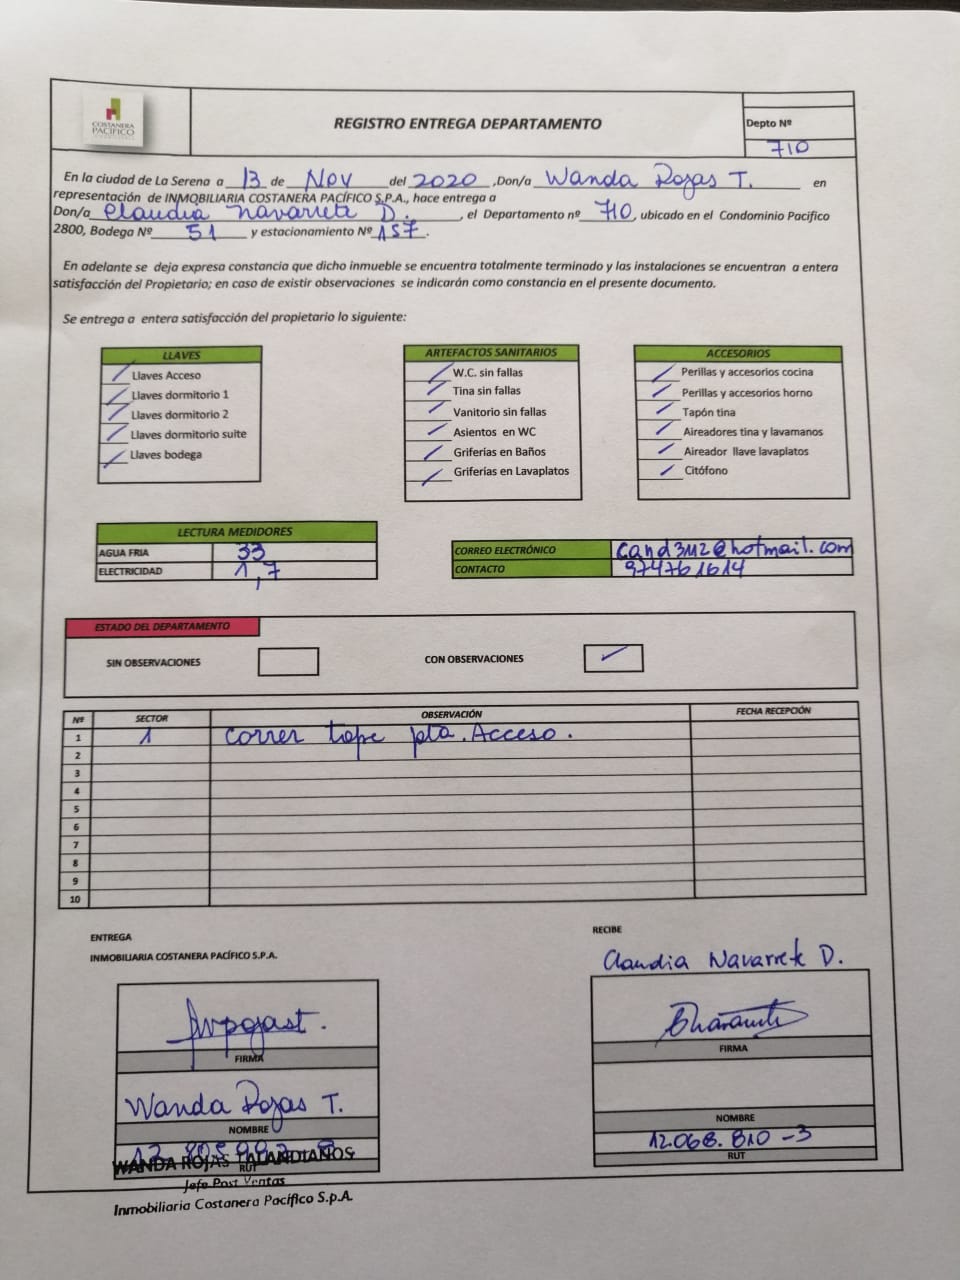 COSTANERA
PACÍFICO
REGISTRO ENTREGA DEPARTAMENTO
Depto Nº
710
En la ciudad de La Serena a 13 de Nov del 2020 ,Don/a Wanda Rojas T. en
representación de INMOBILIARIA COSTANERA PACÍFICO S.P.A., hace entrega a
Don/a Claudia Navarrete D. , el Departamento nº 710, ubicado en el Condominio Pacifico
2800, Bodega Nº 51 y estacionamiento Nº 157.
En adelante se deja expresa constancia que dicho inmueble se encuentra totalmente terminado y las instalaciones se encuentran a entera
satisfacción del Propietario; en caso de existir observaciones se indicarán como constancia en el presente documento.
Se entrega a entera satisfacción del propietario lo siguiente:
LLAVES
Llaves Acceso
Llaves dormitorio 1
Llaves dormitorio 2
Llaves dormitorio suite
Llaves bodega
ARTEFACTOS SANITARIOS
W.C. sin fallas
Tina sin fallas
Vanitorio sin fallas
Asientos en WC
Griferías en Baños
Griferías en Lavaplatos
ACCESORIOS
Perillas y accesorios cocina
Perillas y accesorios horno
Tapón tina
Aireadores tina y lavamanos
Aireador llave lavaplatos
Citófono
LECTURA MEDIDORES
AGUA FRIA 33
ELECTRICIDAD 1,7
CORREO ELECTRÓNICO cand3112@hotmail.com
CONTACTO 974761614
ESTADO DEL DEPARTAMENTO
SIN OBSERVACIONES
CON OBSERVACIONES
Nº SECTOR OBSERVACIÓN FECHA RECEPCIÓN
1 1 correr tope pta. Acceso.
2
3
4
5
6
7
8
9
10
ENTREGA
INMOBILIARIA COSTANERA PACÍFICO S.P.A.
FIRMA
Wanda Rojas T.
NOMBRE
RUT
WANDA ROJAS TALANDIANOS
Jefe Post Ventas
Inmobiliaria Costanera Pacífico S.p.A.
RECIBE
Claudia Navarrete D.
FIRMA
NOMBRE
12.068.810-3
RUT